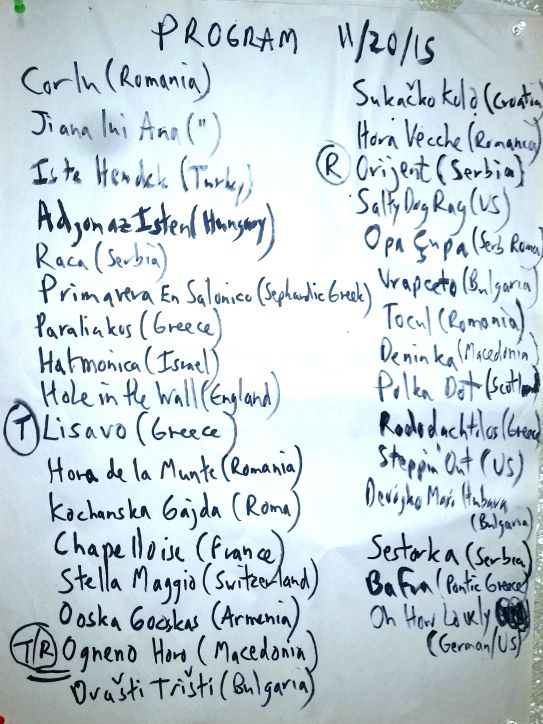 PROGRAM 11/20/15
Corlu (Romania)
Jiana lui Ana (")
Iste Hendek (Turkey)
Adjonaz Isten (Hungary)
Raca (Serbia)
Primavera En Salonico (Sephardic Greek)
Paraliakos (Greece)
Harmonica (Israel)
Hole in the Wall (England)
T Lisavo (Greece)
Hora de la Munte (Romania)
Kochanska Gajda (Roma)
Chapelloise (France)
Stella Maggio (Switzerland)
Ooska Gooskas (Armenia)
T/R Ogneno Horo (Macedonia)
Dvašti Trišti (Bulgaria)
Sukačko Kolo (Croatia)
Hora Vecche (Romania)
R Orijent (Serbia)
Salty Dog Rag (US)
Opa Çupa (Serb Roma)
Vrapceto (Bulgaria)
Tocul (Romania)
Deninka (Macedonia)
Polka Dot (Scotland
Rododachtilos (Greece)
Steppin' Out (US)
Devojko Mari Hubava
(Bulgaria)
Sestorka (Serbia)
Bafra (Pontic Greece
Oh How Lovely
(German/US)